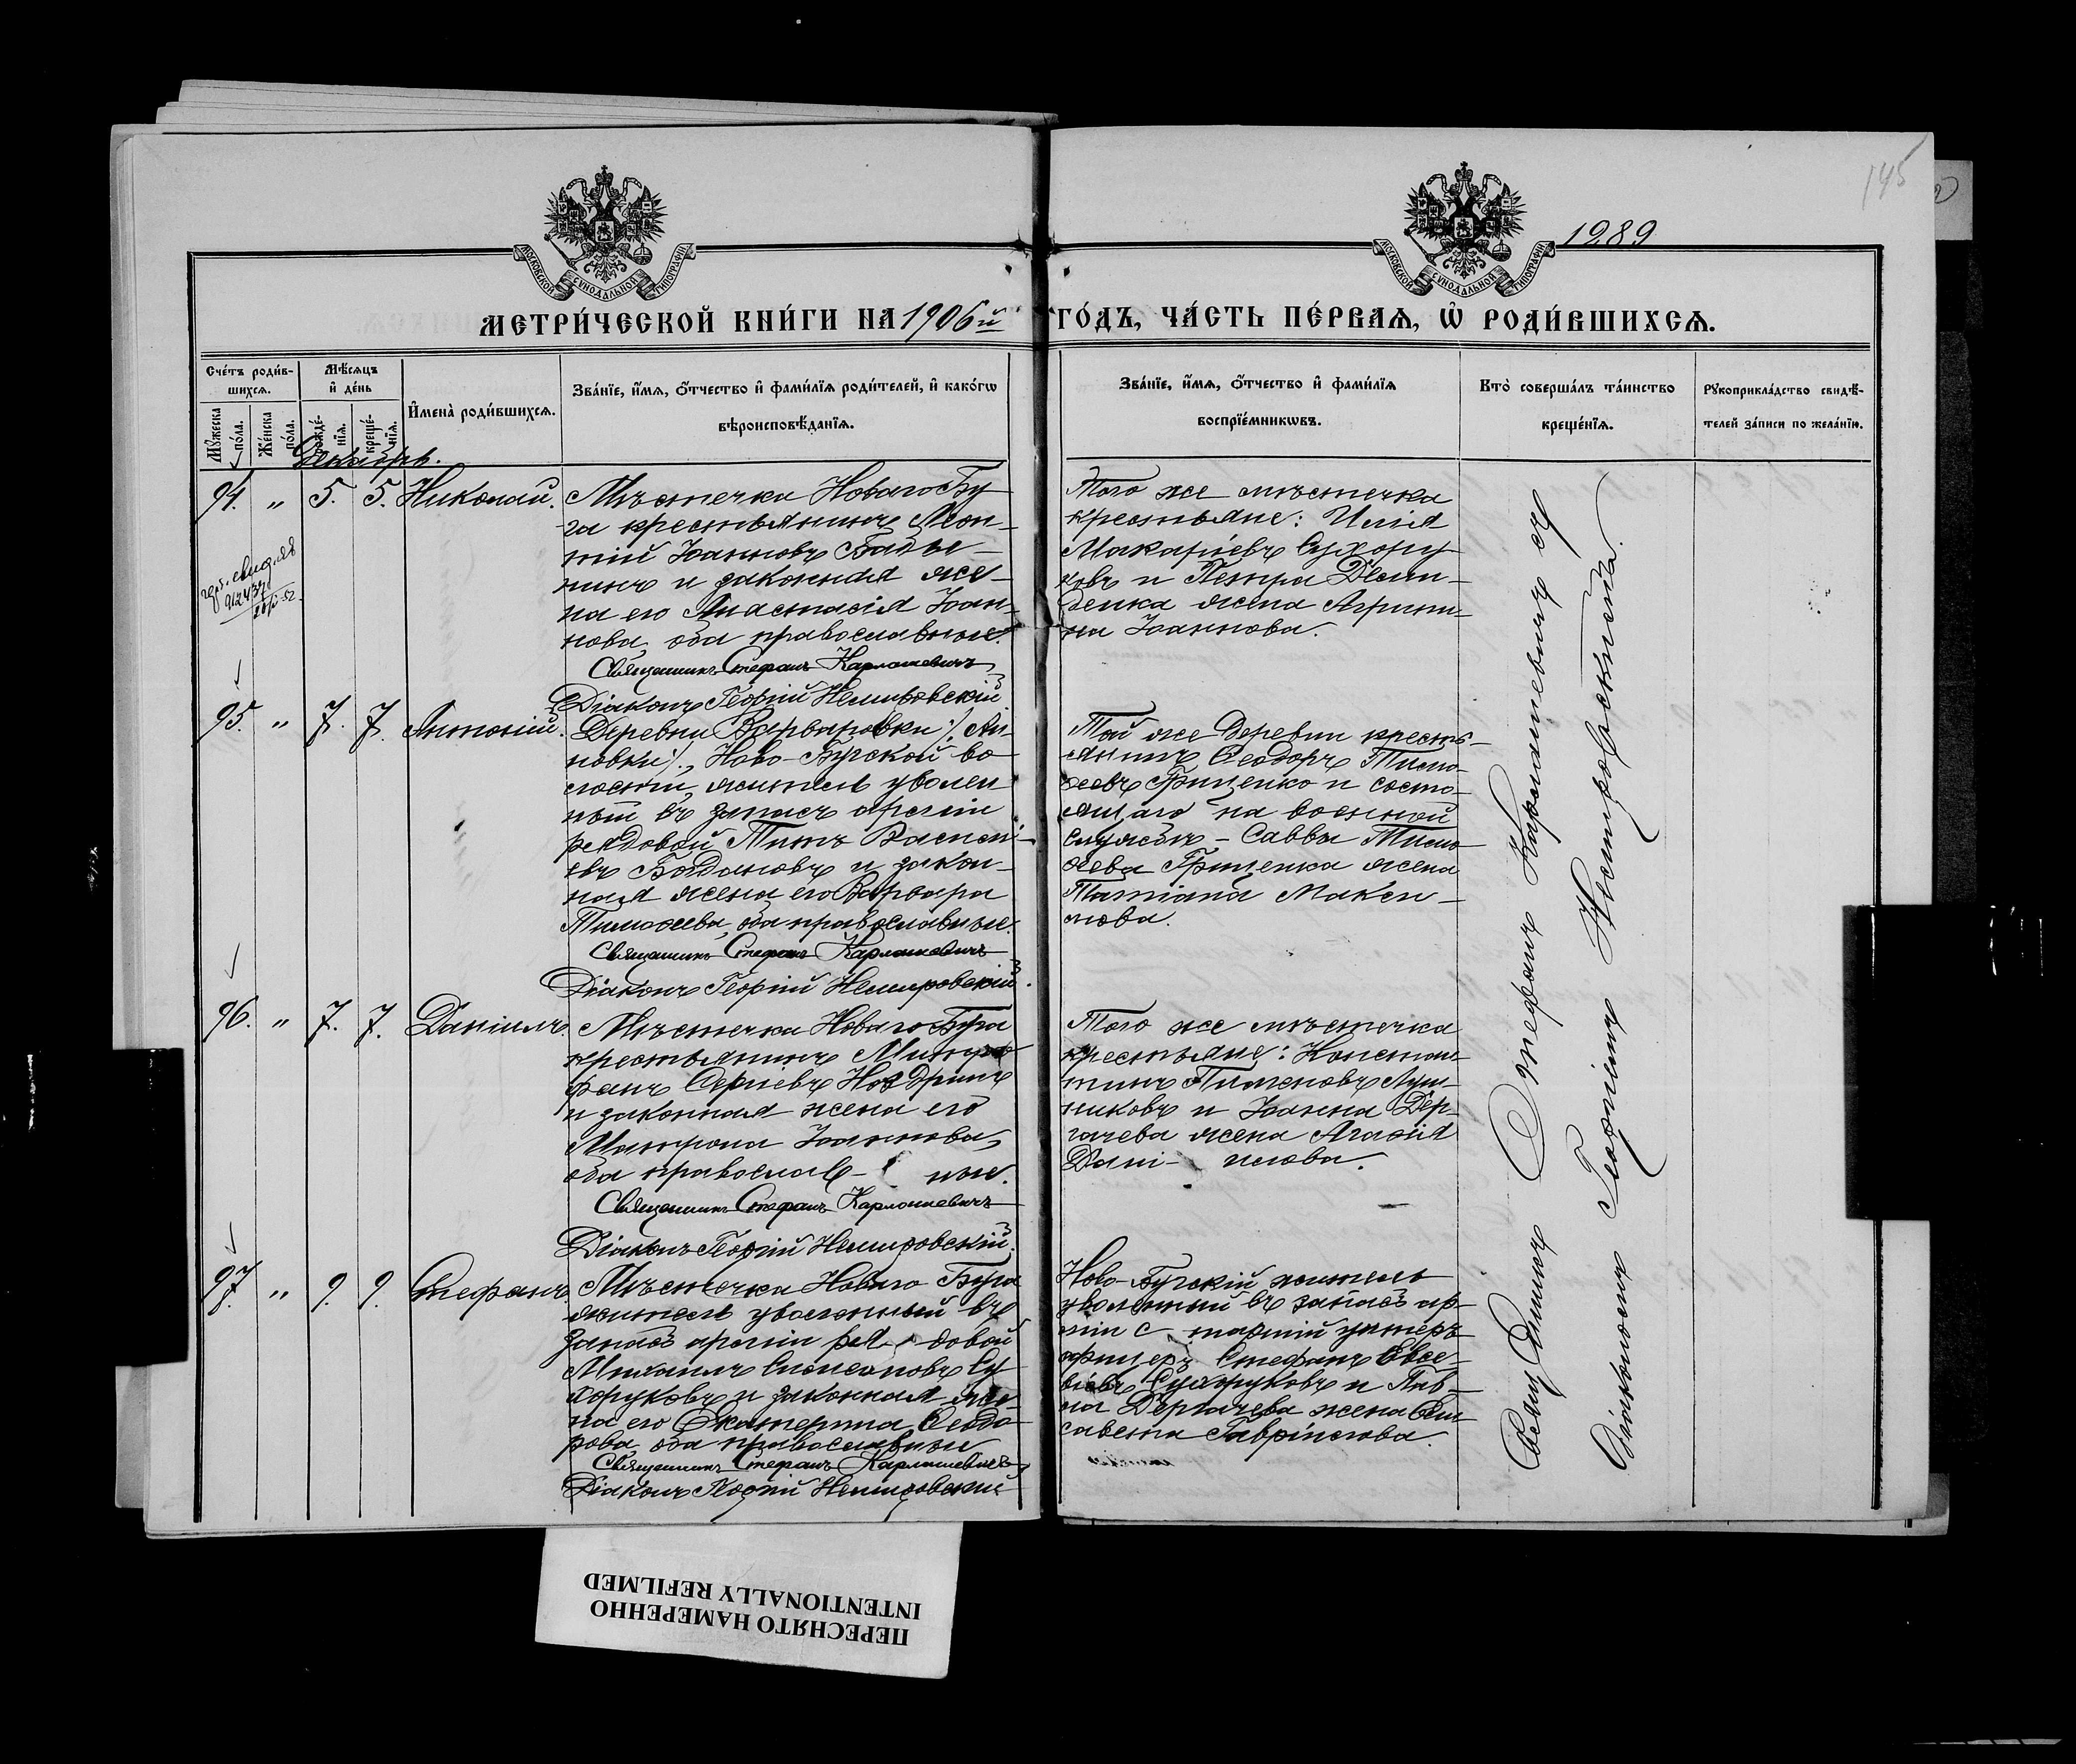 145
1289
МОСКОВСКОЙ СѴНОДАЛЬНОЙ ТИПОГРАФІИ
МОСКОВСКОЙ СѴНОДАЛЬНОЙ ТИПОГРАФІИ
МЕТРИ́ЧЕСКОЙ КНИ́ГИ НА 1906й ГО́ДЪ, ЧА́СТЬ ПЕ́РВАѦ, Ѡ҆ РОДИ́ВШИХСѦ.
Сче́тъ роди́вшихсѧ.
Мꙋ́жеска по́ла.
Же́нска по́ла.
Мѣ́сѧцъ и҆ де́нь
рожде́нїѧ.
креще́нїѧ.
И҆мена̀ роди́вшихсѧ.
Зва́нїе, и҆́мѧ, ѻ҆́тчество и҆ фами́лїѧ роди́телей, и҆ како́гѡ
вѣроисповѣ́данїѧ.
Зва́нїе, и҆́мѧ, ѻ҆́тчество и҆ фами́лїѧ
воспрїе́мникѡвъ.
Кто̀ соверша́лъ та́инство
креще́нїѧ.
Рꙋкоприкла́дство свидѣ́-
телей за́писи по жела́нїю.
Декабрь.
94. " 5. 5. Николай.
Мѣстечка Новаго Бу-
га крестьянинъ Леон-
тій Іоанновъ
и законная же-
на его Анастасія Іоан-
нова, оба православные.
Священникъ Стефанъ Карлашевичъ
Діаконъ Георгій Немировскій
Того же мѣстечка
крестьяне: Илія
Макаріевъ Сухору-
ковъ и Петра
жена Агрипи-
на Іоаннова.
95. " 7. 7. Антоній.
Деревни Варваровки /: Ан-
новки :/, Ново-Бугской во-
лости, житель уволен-
ный въ запасъ арміи
рядовой Титъ Василі-
евъ Богдановъ и закон-
ная жена его Варвара
Тимоѳеева, оба православные.
Священникъ Стефанъ Карлашевичъ
Діаконъ Георгій Немировскій.
Той же деревни кресть-
янинъ Ѳеодоръ Тимо-
ѳеевъ Грищенко и состо-
ящаго на военной
службѣ - Саввы Тимо-
ѳеева Грищенка жена
Татіана Макси-
мова.
96. " 7. 7. Даніилъ.
Мѣстечка Новаго Буга
крестьянинъ Митро-
фанъ Сергіевъ Ноздринъ
и законная жена его
Матрона Іоаннова,
оба православ- ные.
Священникъ Стефанъ Карлашевичъ
Діаконъ Георгій Немировскій.
Того же мѣстечка
крестьяне: Констан-
тинъ Пименовъ
и Іоанна Дер-
гачева жена Агафія
Дані- илова.
97. " 9. 9. Стефанъ
Мѣстечка Новаго Буга
житель уволенный въ
запасъ арміи ря- довой
Михаилъ Симеоновъ Су-
хоруковъ и законная же-
на его Екатерина Ѳеодо-
рова, оба православные
Священникъ Стефанъ Карлашевичъ
Діаконъ Георгій Немировскій
Ново-Бугскій житель
уволенный въ запасъ ар-
міи с таршій унтеръ
офицеръ Стефанъ Евсе-
віевъ Сухоруковъ и Пав-
ла Дергачева жена Ели-
савета Гавріилова.
Священникъ Стефанъ Карлашевичъ съ
Діакономъ Георгіемъ Немировскимъ.
ПЕРЕСНЯТО НАМЕРЕННО
INTENTIONALLY REFILMED